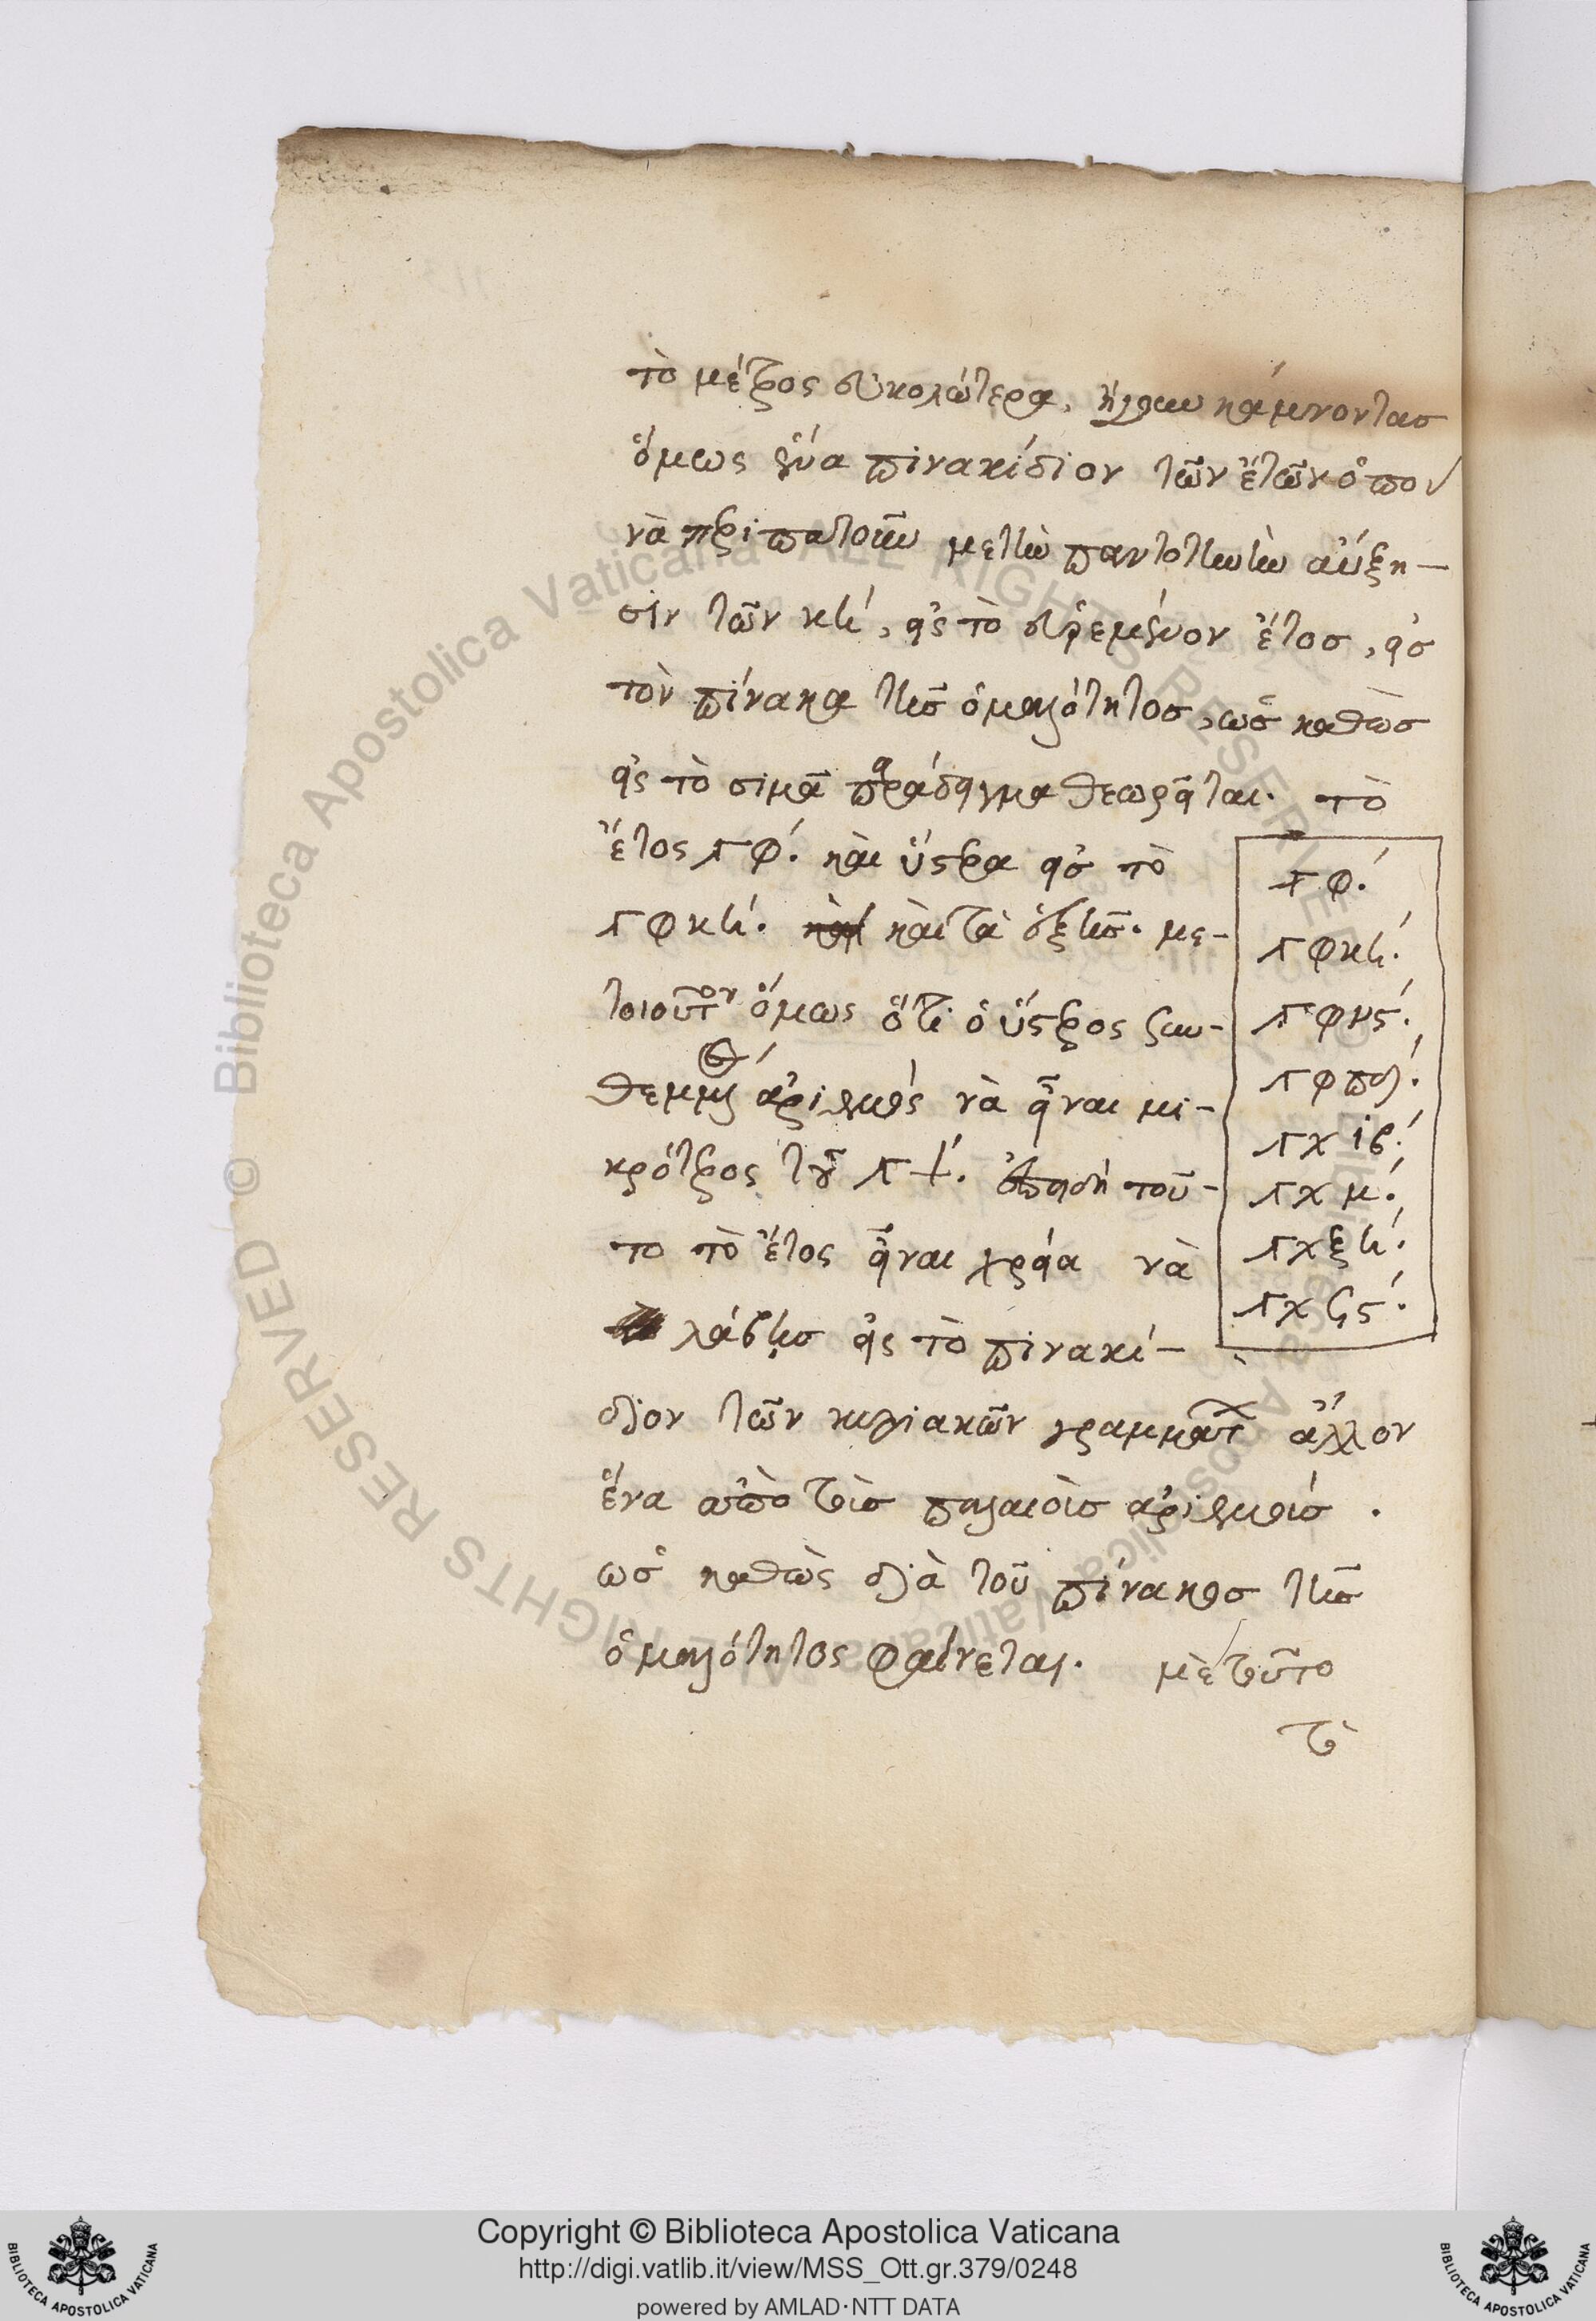 τὸ μέρος εὐκολώτερα, ἤγουν κάμνοντας
ὅμως ἕνα πινακίδιον τῶν ἐτῶν ὁποῦ
νὰ περιπατοῦν μετὴν παντοτινὴν αὔξη-
σιν τῶν κη΄, εἰς τὸ εὑρεμένον ἔτος, εἰς
τὸν πίνακα τῆς ὁμαλότητος, ὡς καθὼς
εἰς τὸ σιμᾶ παράδειγμα θεωρεῖται. τὸ
ἔτος ͵αφ΄. καὶ ὕστερα εἰς τὸ
͵αφκη΄. καὶ τὰ ἑξῆς. με-
τοιοῦτον ὅμως ὅτι ὁ ὕστερος
ἀριθμὸς νὰ εἶναι μι-
κρότερος τοῦ ͵αψ΄. ἐπειδὴ τοῦ-
το τὸ ἔτος εἶναι χρεία νὰ
λάβῃς εἰς τὸ πινακί-
διον τῶν κυριακῶν γραμμάτ ἄλλον
ἕνα ἀπὸ τοὺς παλαιοὺς ἀριθμούς.
ὡς καθὼς διὰ τοῦ πίνακος τῆς
ὁμαλότητος φαίνεται. μὲ τοῦτο
τὸ
͵αφ΄.
͵αφκη΄.
͵αφνϛ΄.
͵αφπδ΄.
͵αχιβ΄.
͵αχμ΄.
͵αχξη΄.
͵αχϟϛ΄.
Copyright © Biblioteca Apostolica Vaticana
http://digi.vatlib.it/view/MSS_Ott.gr.379/0248
powered by AMLAD·NTT DATA
BIBLIOTECA APOSTOLICA VATICANA
BIBLIOTECA APOSTOLICA VATICANA